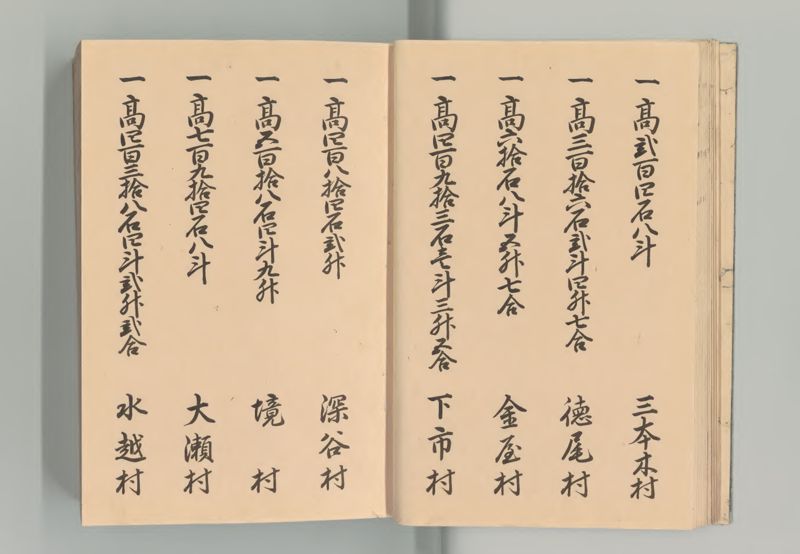 一 高弐百四石八斗 三本木村
一 高三百拾六石弐斗四升七合 徳尾村
一 高六拾石八斗五升七合 金屋村
一 高四百九拾三石壱斗三升五合 下市村
一 高四百八拾四石弐升 深谷村
一 高五百拾八石四斗九升 境村
一 高七百九拾四石八斗 大瀬村
一 高四百三拾八石四斗弐升弐合 水越村